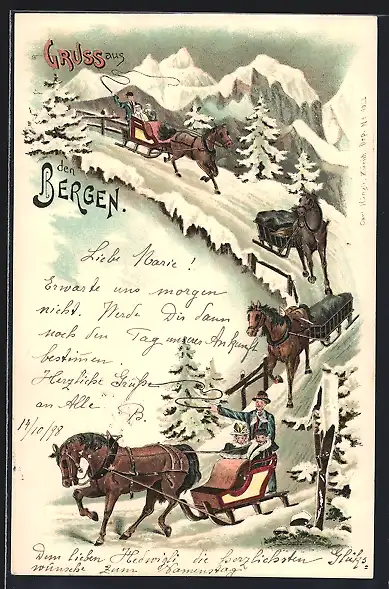 GRUSS aus
den
BERGEN.
Liebe Marie!
Erwarte uns morgen
nicht. Werde Dir dann
noch den Tag unserer Ankunft
bestimmen
Herzliche Grüsse
an Alle
13/10/98
Dem lieben Hedwigli die herzlichsten Glücks-
wünsche zum Namenstag